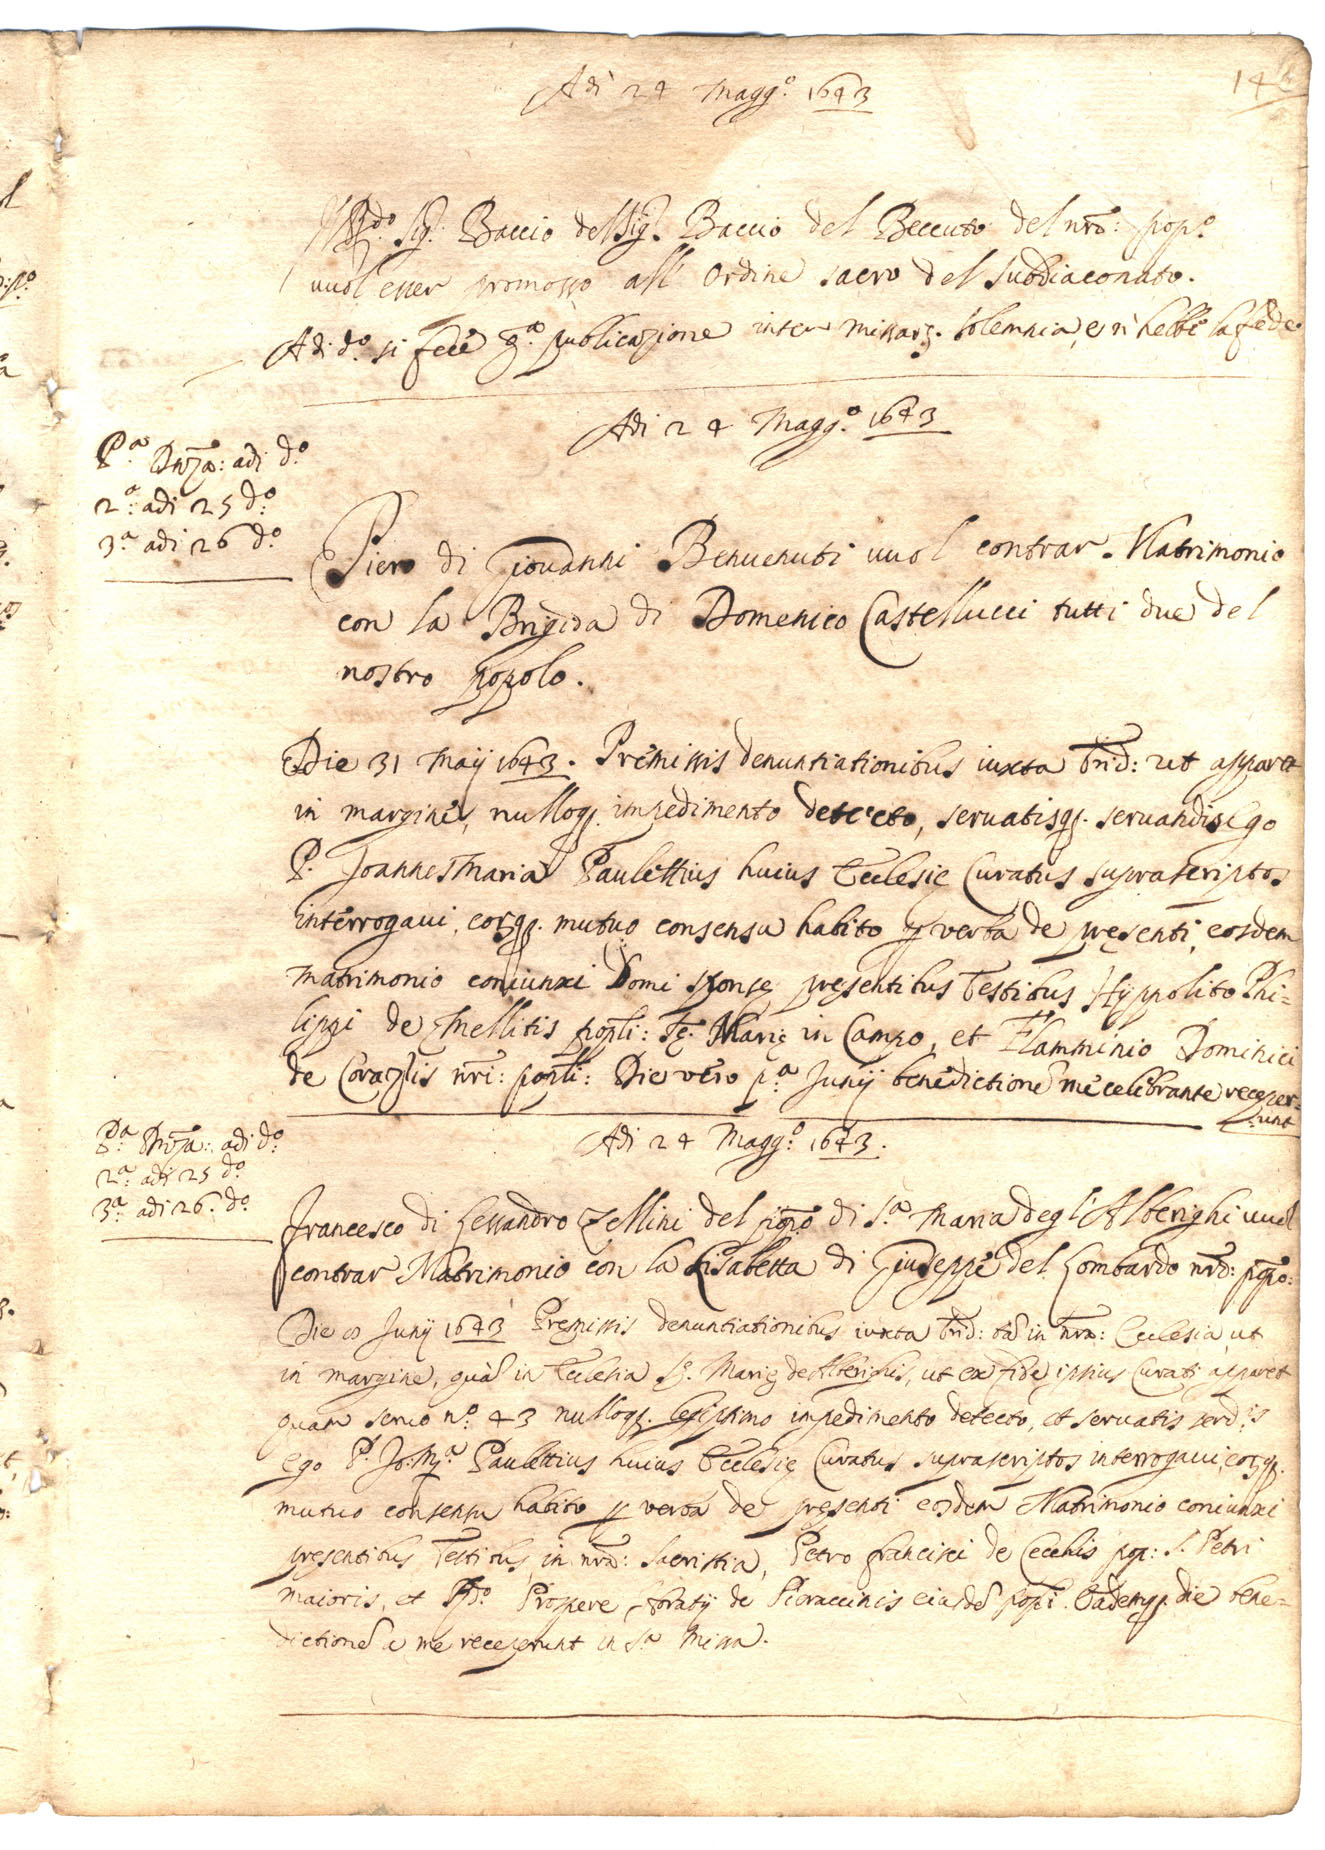 Adì 24 Magg.º 1643
14
Il R.do Sig.r Baccio del Sig.r Baccio del Beccuto del nrō: pop.º
vuol esser promosso all' Ordine sacro del Subdiaconato.
Adi d.º si fece p.ª publicazione inter missarz. solemnia, e n'hebbe la fede
Adi 24 Magg.º 1643
P.ª Dnza: adi d.º
2.ª adi 25 d.º
3.ª adi 26 d.º
Piero di Giovanni Benvenuti vuol contrar. Matrimonio
con la Brigida di Domenico Castellucci tutti due del
nostro popolo.
Die 31 Maij 1643. Premissis denuntiationibus iuxta Trid: ut apparet
in margine, nulloq. impedimento detecto, servatisq. servandis Ego
P. Joannes Maria Paulettius huius Ecclesię Curatus suprascriptos
interrogavi, eorzq. mutuo consensu habito p verba de pręsenti, eosdem
matrimonio coniunxi Domi sponsę pręsentibus Testibus Hyppolito Phi=
lippi de Mellitis popli: Sę. Marię in Campo, et Flamminio Dominici
de Corazzis nri: popli: Die vero p.ª Junij benedictionē me celebrante receper=
unt
Adi 24 Magg.º 1643.
P.ª Dnza: adi d.º
2.ª adi 25 d.º
3.ª adi 26. d.º
Francesco di Lessandro Zellini del popō di S.ª Maria degl' Alberighi vuol
contrar Matrimonio con la Lisabetta di Giuseppe del Lombardo nrō: popō:
Die Junij 1643 Pręmissis denuntiationibus iuxta Trid: tā in nrā: Ecclesia, ut
in margine, quā in Ecclesia S. Marię de Alberighis, ut ex fide ipsius Curati apparet
quam servo n.º 43 nulloq. legiptimo impedimento detecto, et servatis serd.is
ego P. Jo: M.ª Paulettius huius Ecclesię Curatus suprascriptos interrogavi, eorzq.
mutuo consensu habito p verba de pręsenti eosdem Matrimonio coniunxi
pręsentibus Testibus, in nrā: Sacristia, Petro Francisci de Cecchis pop: S. Petri
maioris, et Prospero Horatij de Pieraccinis eiusdē popli. Eademq. die bene=
dictionē a me receperunt in S.ª Missa.